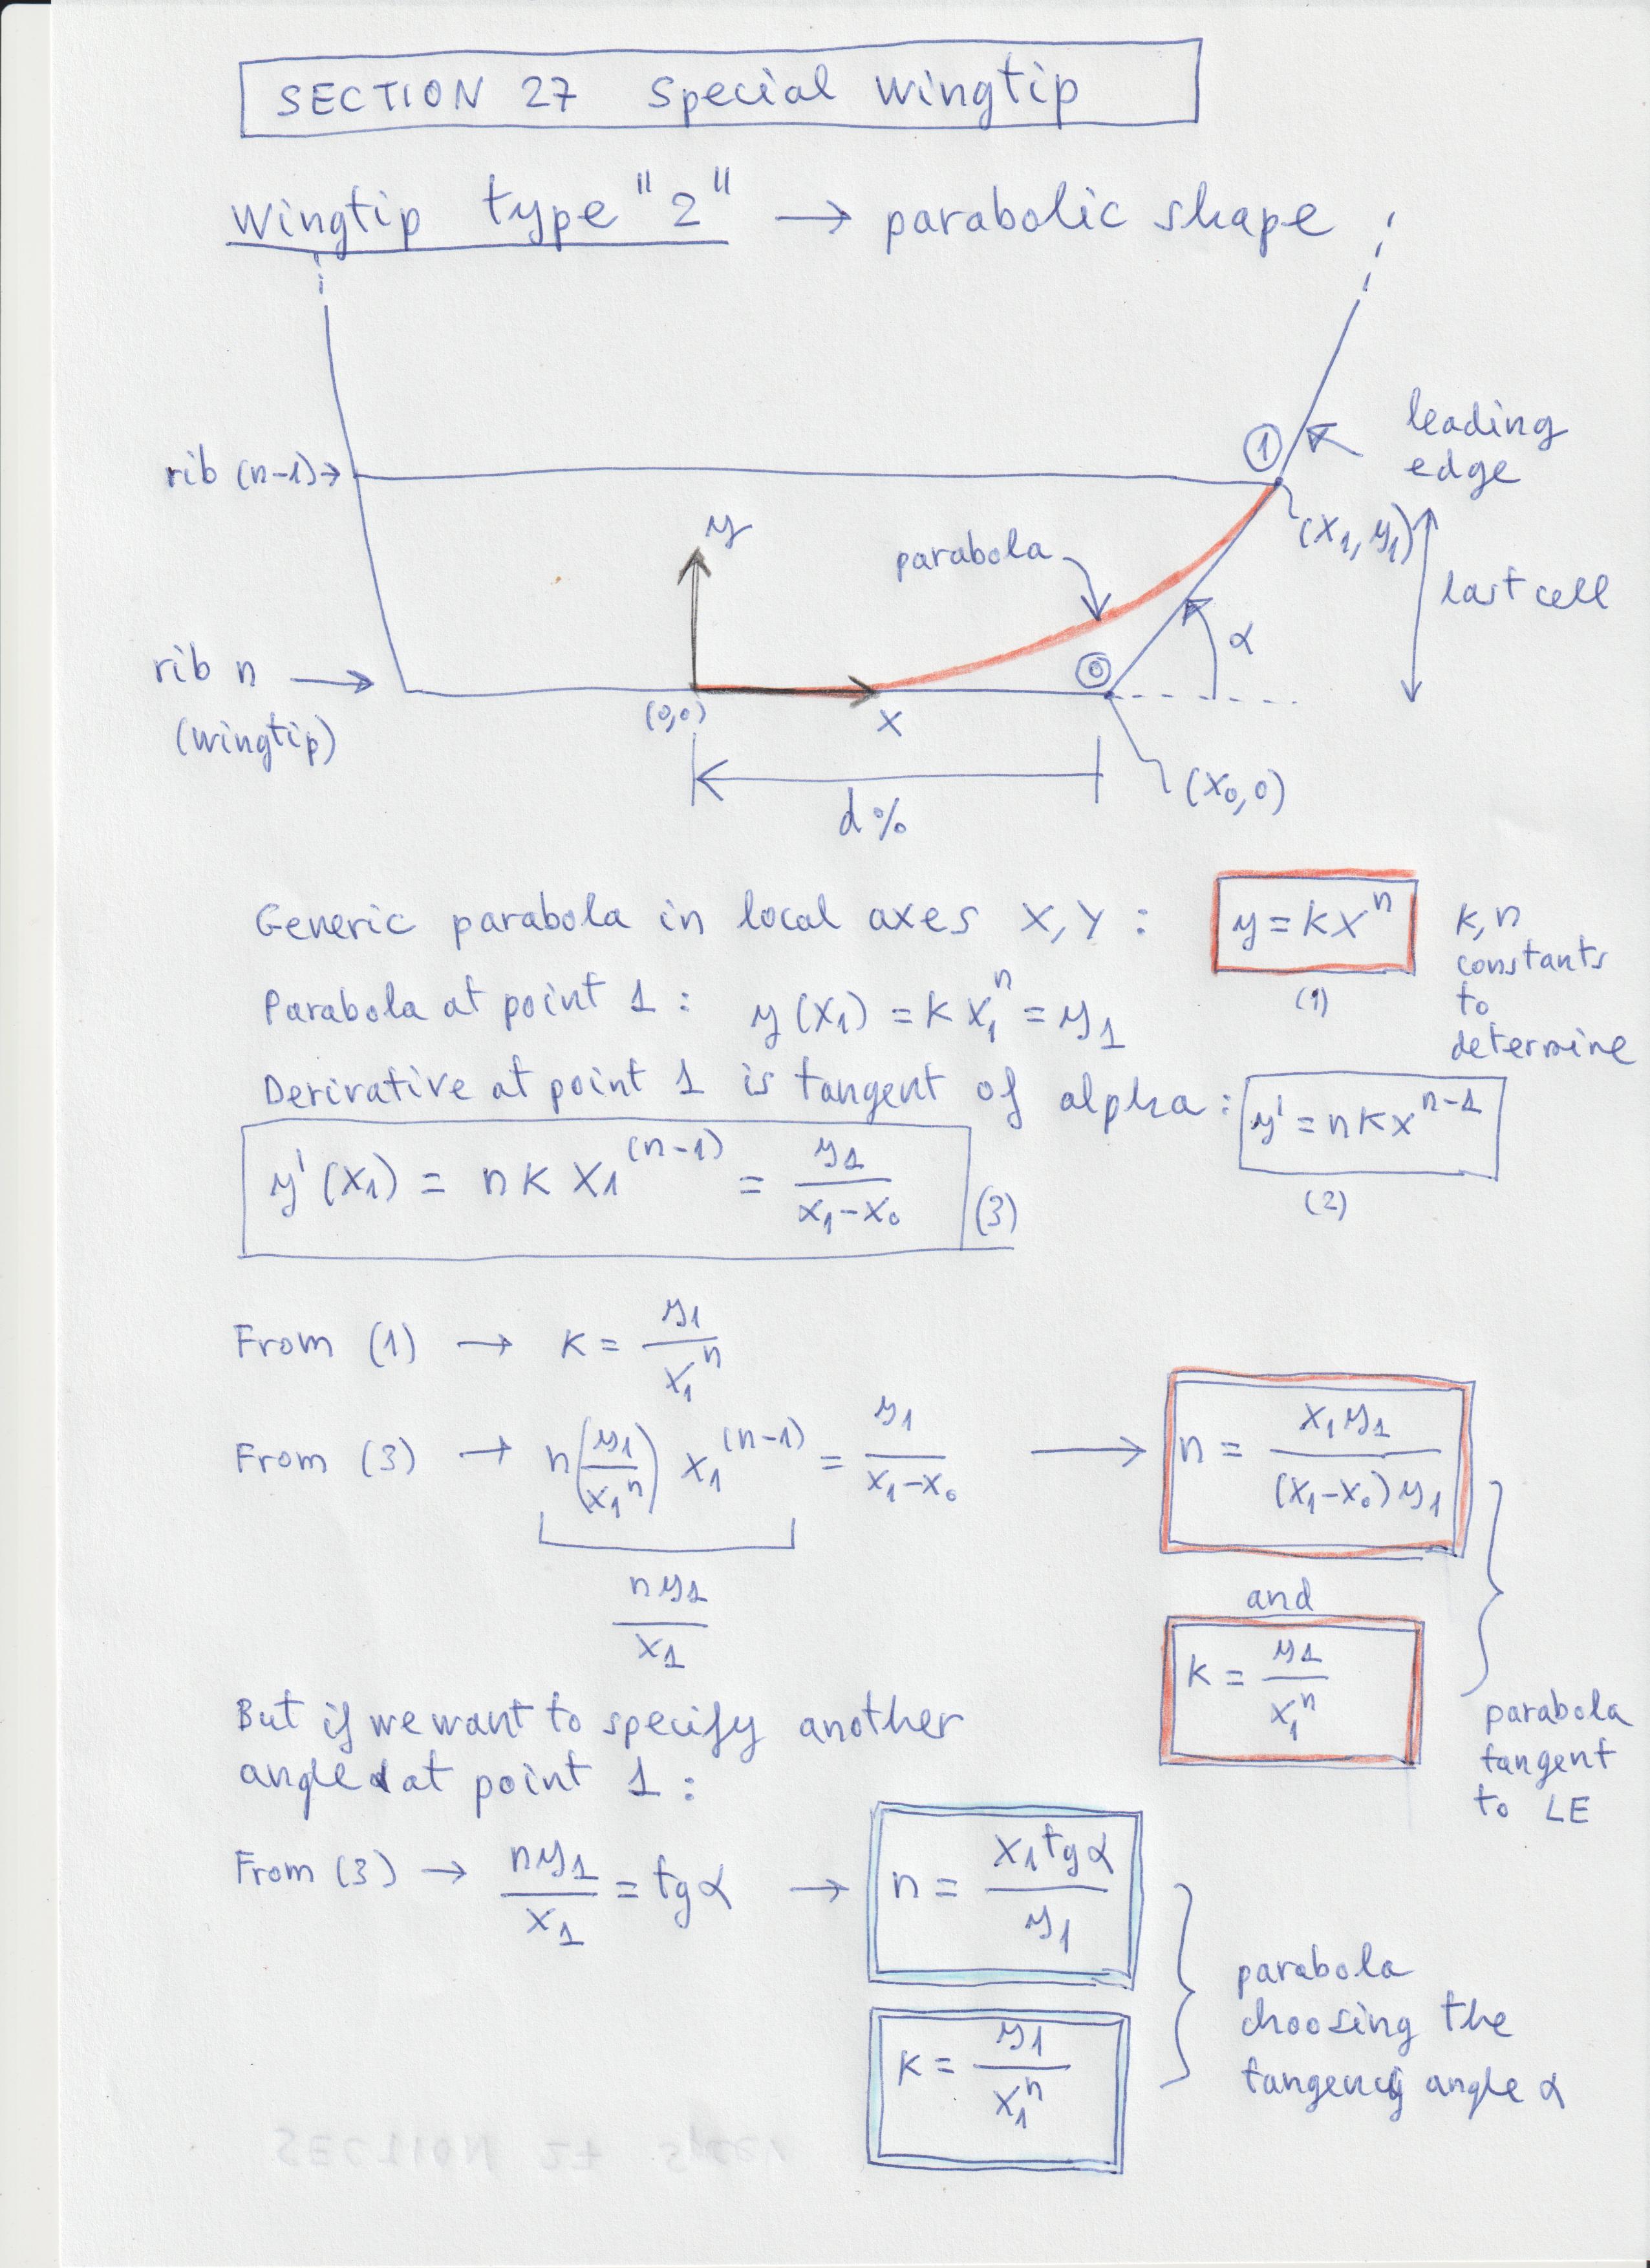 SECTION 27 Special Wingtip
Wingtip type "2" → parabolic shape
leading
edge
rib (n-1)→
①
(x₁, y₁)
y
parabola
last cell
α
rib n →
(wingtip)
⓪
(0,0)
x
(x₀, 0)
d%
Generic parabola in local axes X, Y : y = kxⁿ
(1)
k, n
constants
to
determine
Parabola at point 1 : y(x₁) = k x₁ⁿ = y₁
Derivative at point 1 is tangent of alpha : y' = n k x^(n-1)
(2)
y'(x₁) = n k x₁^(n-1) = y₁ / (x₁-x₀) (3)
From (1) → k = y₁ / x₁ⁿ
From (3) → n (y₁ / x₁ⁿ) x₁^(n-1) = y₁ / (x₁-x₀) → n = x₁ y₁ / (x₁-x₀) y₁
n y₁ / x₁
and
k = y₁ / x₁ⁿ
parabola
tangent
to LE
But if we want to specify another
angle α at point 1 :
From (3) → n y₁ / x₁ = tg α → n = x₁ tg α / y₁
k = y₁ / x₁ⁿ
parabola
choosing the
tangency angle α